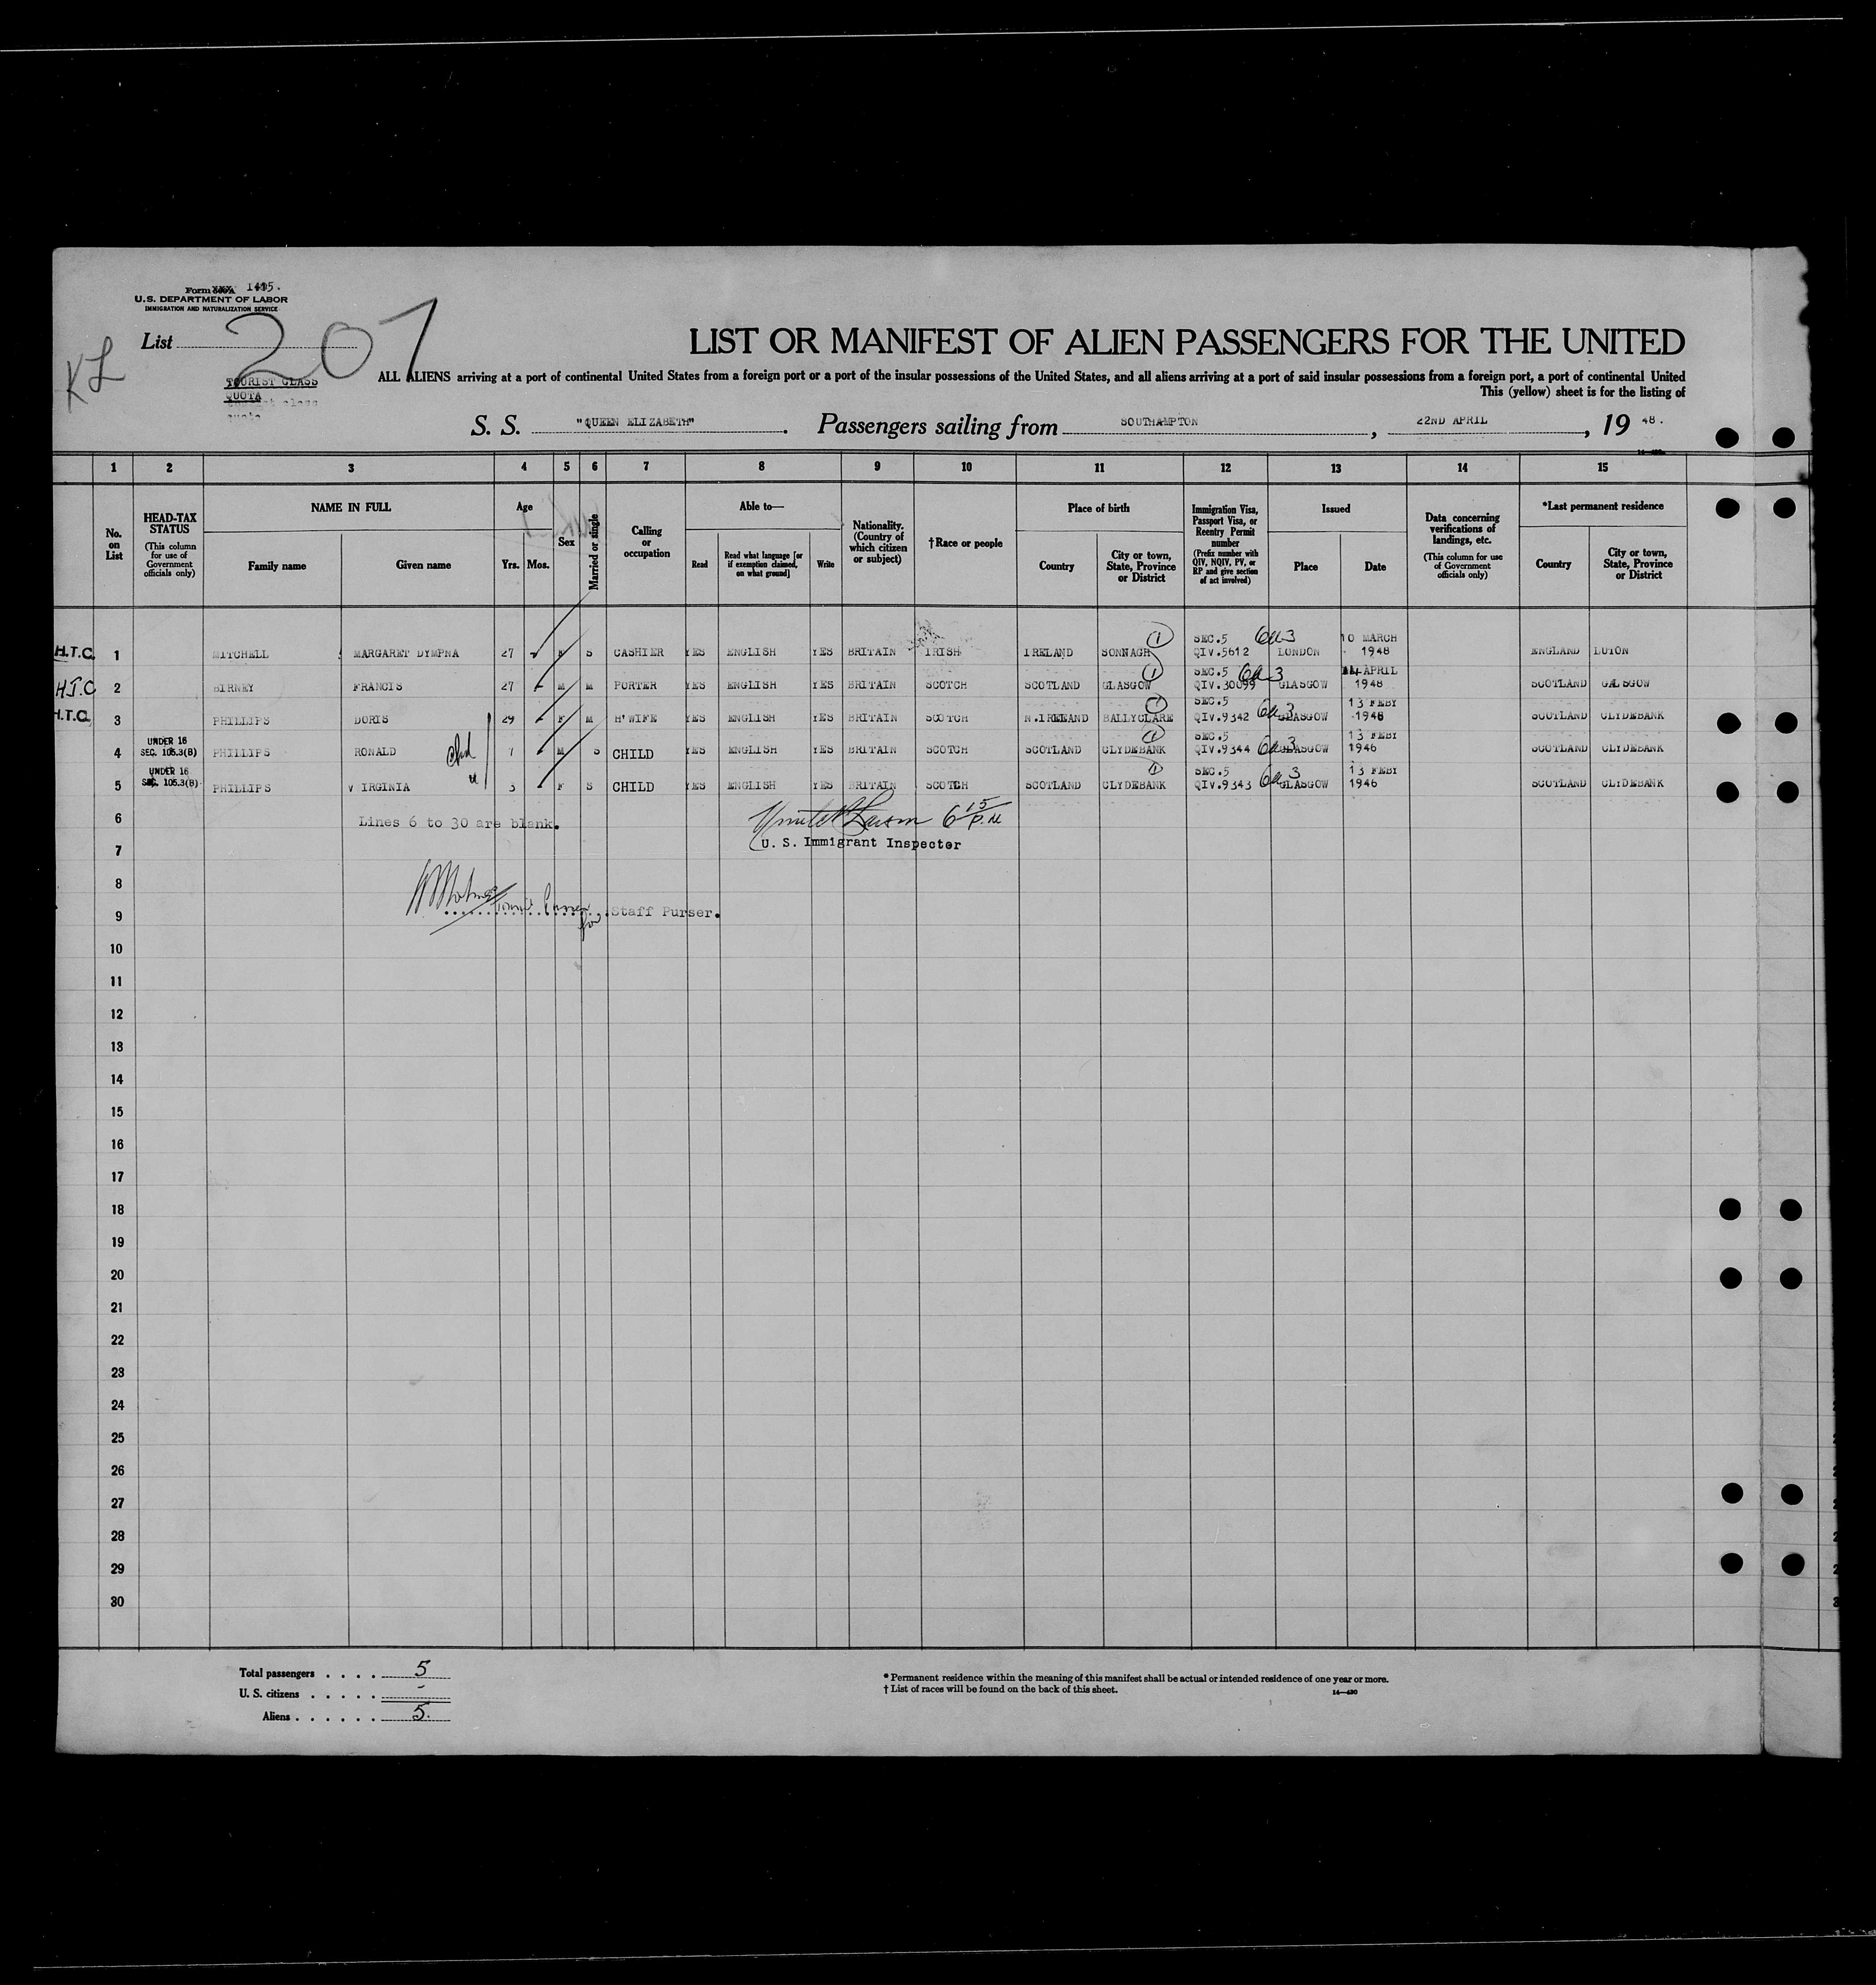 Form 1415.
U.S. DEPARTMENT OF LABOR
IMMIGRATION AND NATURALIZATION SERVICE
List 207
KL
TOURIST CLASS
QUOTA
LIST OR MANIFEST OF ALIEN PASSENGERS FOR THE UNITED
ALL ALIENS arriving at a port of continental United States from a foreign port or a port of the insular possessions of the United States, and all aliens arriving at a port of said insular possessions from a foreign port, a port of continental United
This (yellow) sheet is for the listing of
S. S. "QUEEN ELIZABETH". Passengers sailing from SOUTHAMPTON, 22ND APRIL, 19 48.
1 2 3 4 5 6 7 8 9 10 11 12 13 14 15
No. on List
HEAD-TAX STATUS (This column for use of Government officials only)
NAME IN FULL
Family name Given name
Age
Yrs. Mos.
Sex
Married or single
Calling or occupation
Able to—
Read Read what language [or if exemption claimed, on what ground] Write
Nationality. (Country of which citizen or subject)
†Race or people
Place of birth
Country City or town, State, Province or District
Immigration Visa, Passport Visa, or Reentry Permit number (Prefix number with QIV, NQIV, PV, or RP and give section of act involved)
Issued
Place Date
Data concerning verifications of landings, etc. (This column for use of Government officials only)
*Last permanent residence
Country City or town, State, Province or District
H.T.C. 1 MITCHELL MARGARET DYMPNA 27 F S CASHIER YES ENGLISH YES BRITAIN IRISH IRELAND SONNAGH SEC.5 QIV.5612 LONDON 10 MARCH 1948 ENGLAND LUTON
H.T.C 2 BIRNEY FRANCIS 27 M M PORTER YES ENGLISH YES BRITAIN SCOTCH SCOTLAND GLASGOW SEC.5 QIV.30099 GLASGOW APRIL 1948 SCOTLAND GLASGOW
H.T.C. 3 PHILLIPS DORIS 29 F M H'WIFE YES ENGLISH YES BRITAIN SCOTCH N.IRELAND BALLYCLARE SEC.5 QIV.9342 GLASGOW 13 FEBY 1948 SCOTLAND CLYDEBANK
UNDER 16 SEC. 105.3(B) 4 PHILLIPS RONALD 7 M S CHILD YES ENGLISH YES BRITAIN SCOTCH SCOTLAND CLYDEBANK SEC.5 QIV.9344 GLASGOW 13 FEBY 1946 SCOTLAND CLYDEBANK
UNDER 16 SEC. 105.3(B) 5 PHILLIPS VIRGINIA 3 F S CHILD YES ENGLISH YES BRITAIN SCOTCH SCOTLAND CLYDEBANK SEC.5 QIV.9343 GLASGOW 13 FEBY 1946 SCOTLAND CLYDEBANK
6 Lines 6 to 30 are blank. 6 15 P.M
7 U. S. Immigrant Inspector
8
9 for Staff Purser.
10
11
12
13
14
15
16
17
18
19
20
21
22
23
24
25
26
27
28
29
30
Total passengers . . . . 5
U. S. citizens . . . . . -
Aliens . . . . . . 5.
* Permanent residence within the meaning of this manifest shall be actual or intended residence of one year or more.
† List of races will be found on the back of this sheet.
14—430